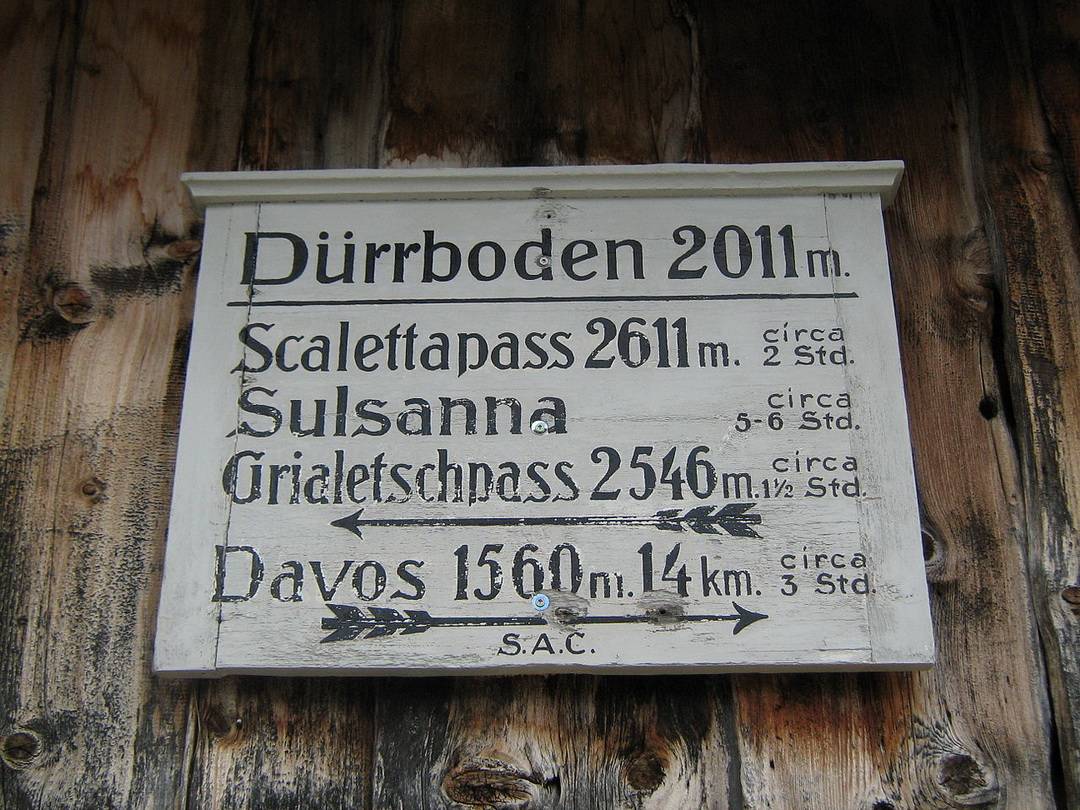 Dürrboden 2011 m.
Scalettapass 2611 m. circa 2 Std.
Sulsanna circa 5-6 Std.
Grialetschpass 2546 m. circa 1½ Std.
Davos 1560 m. 14 km. circa 3 Std.
S.A.C.